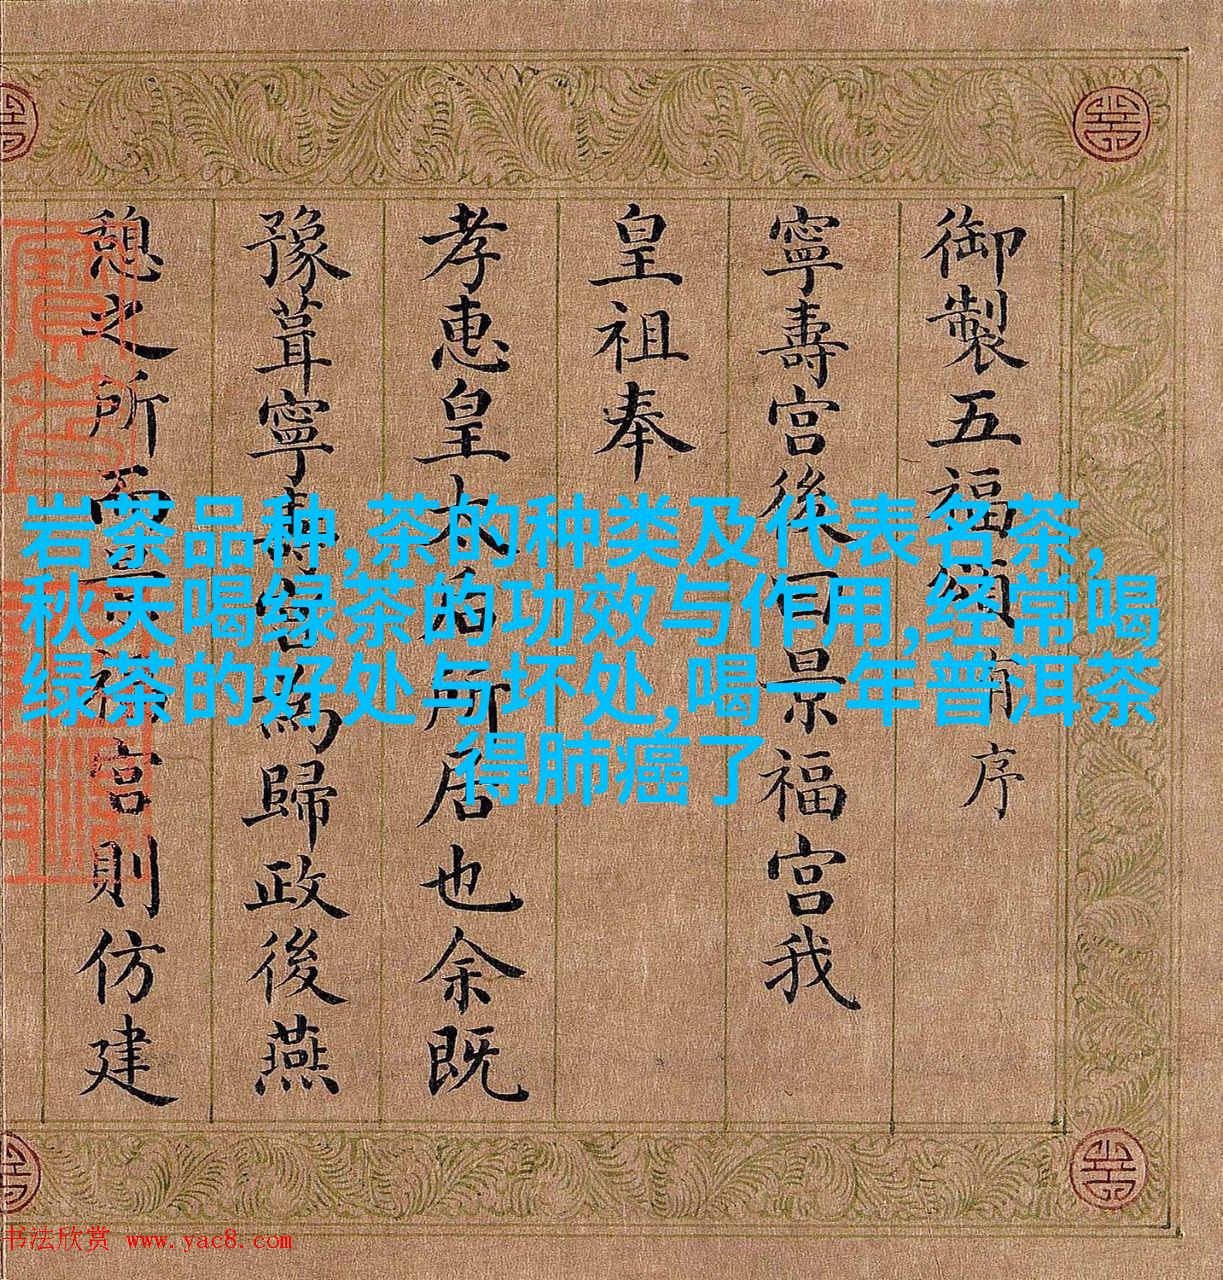 御製五福頌有序
寧壽宮後曰景福宮我
皇祖奉
孝惠皇太后所居也余既
豫葺寧壽宮為歸政後燕
憩之所而景福宮則仿建
岩茶品种,茶的种类及代表名茶,
秋天喝绿茶的功效与作用,经常喝
绿茶的好处与坏处,喝一年普洱茶
得肺癌了
书法欣赏 www.yac8.com